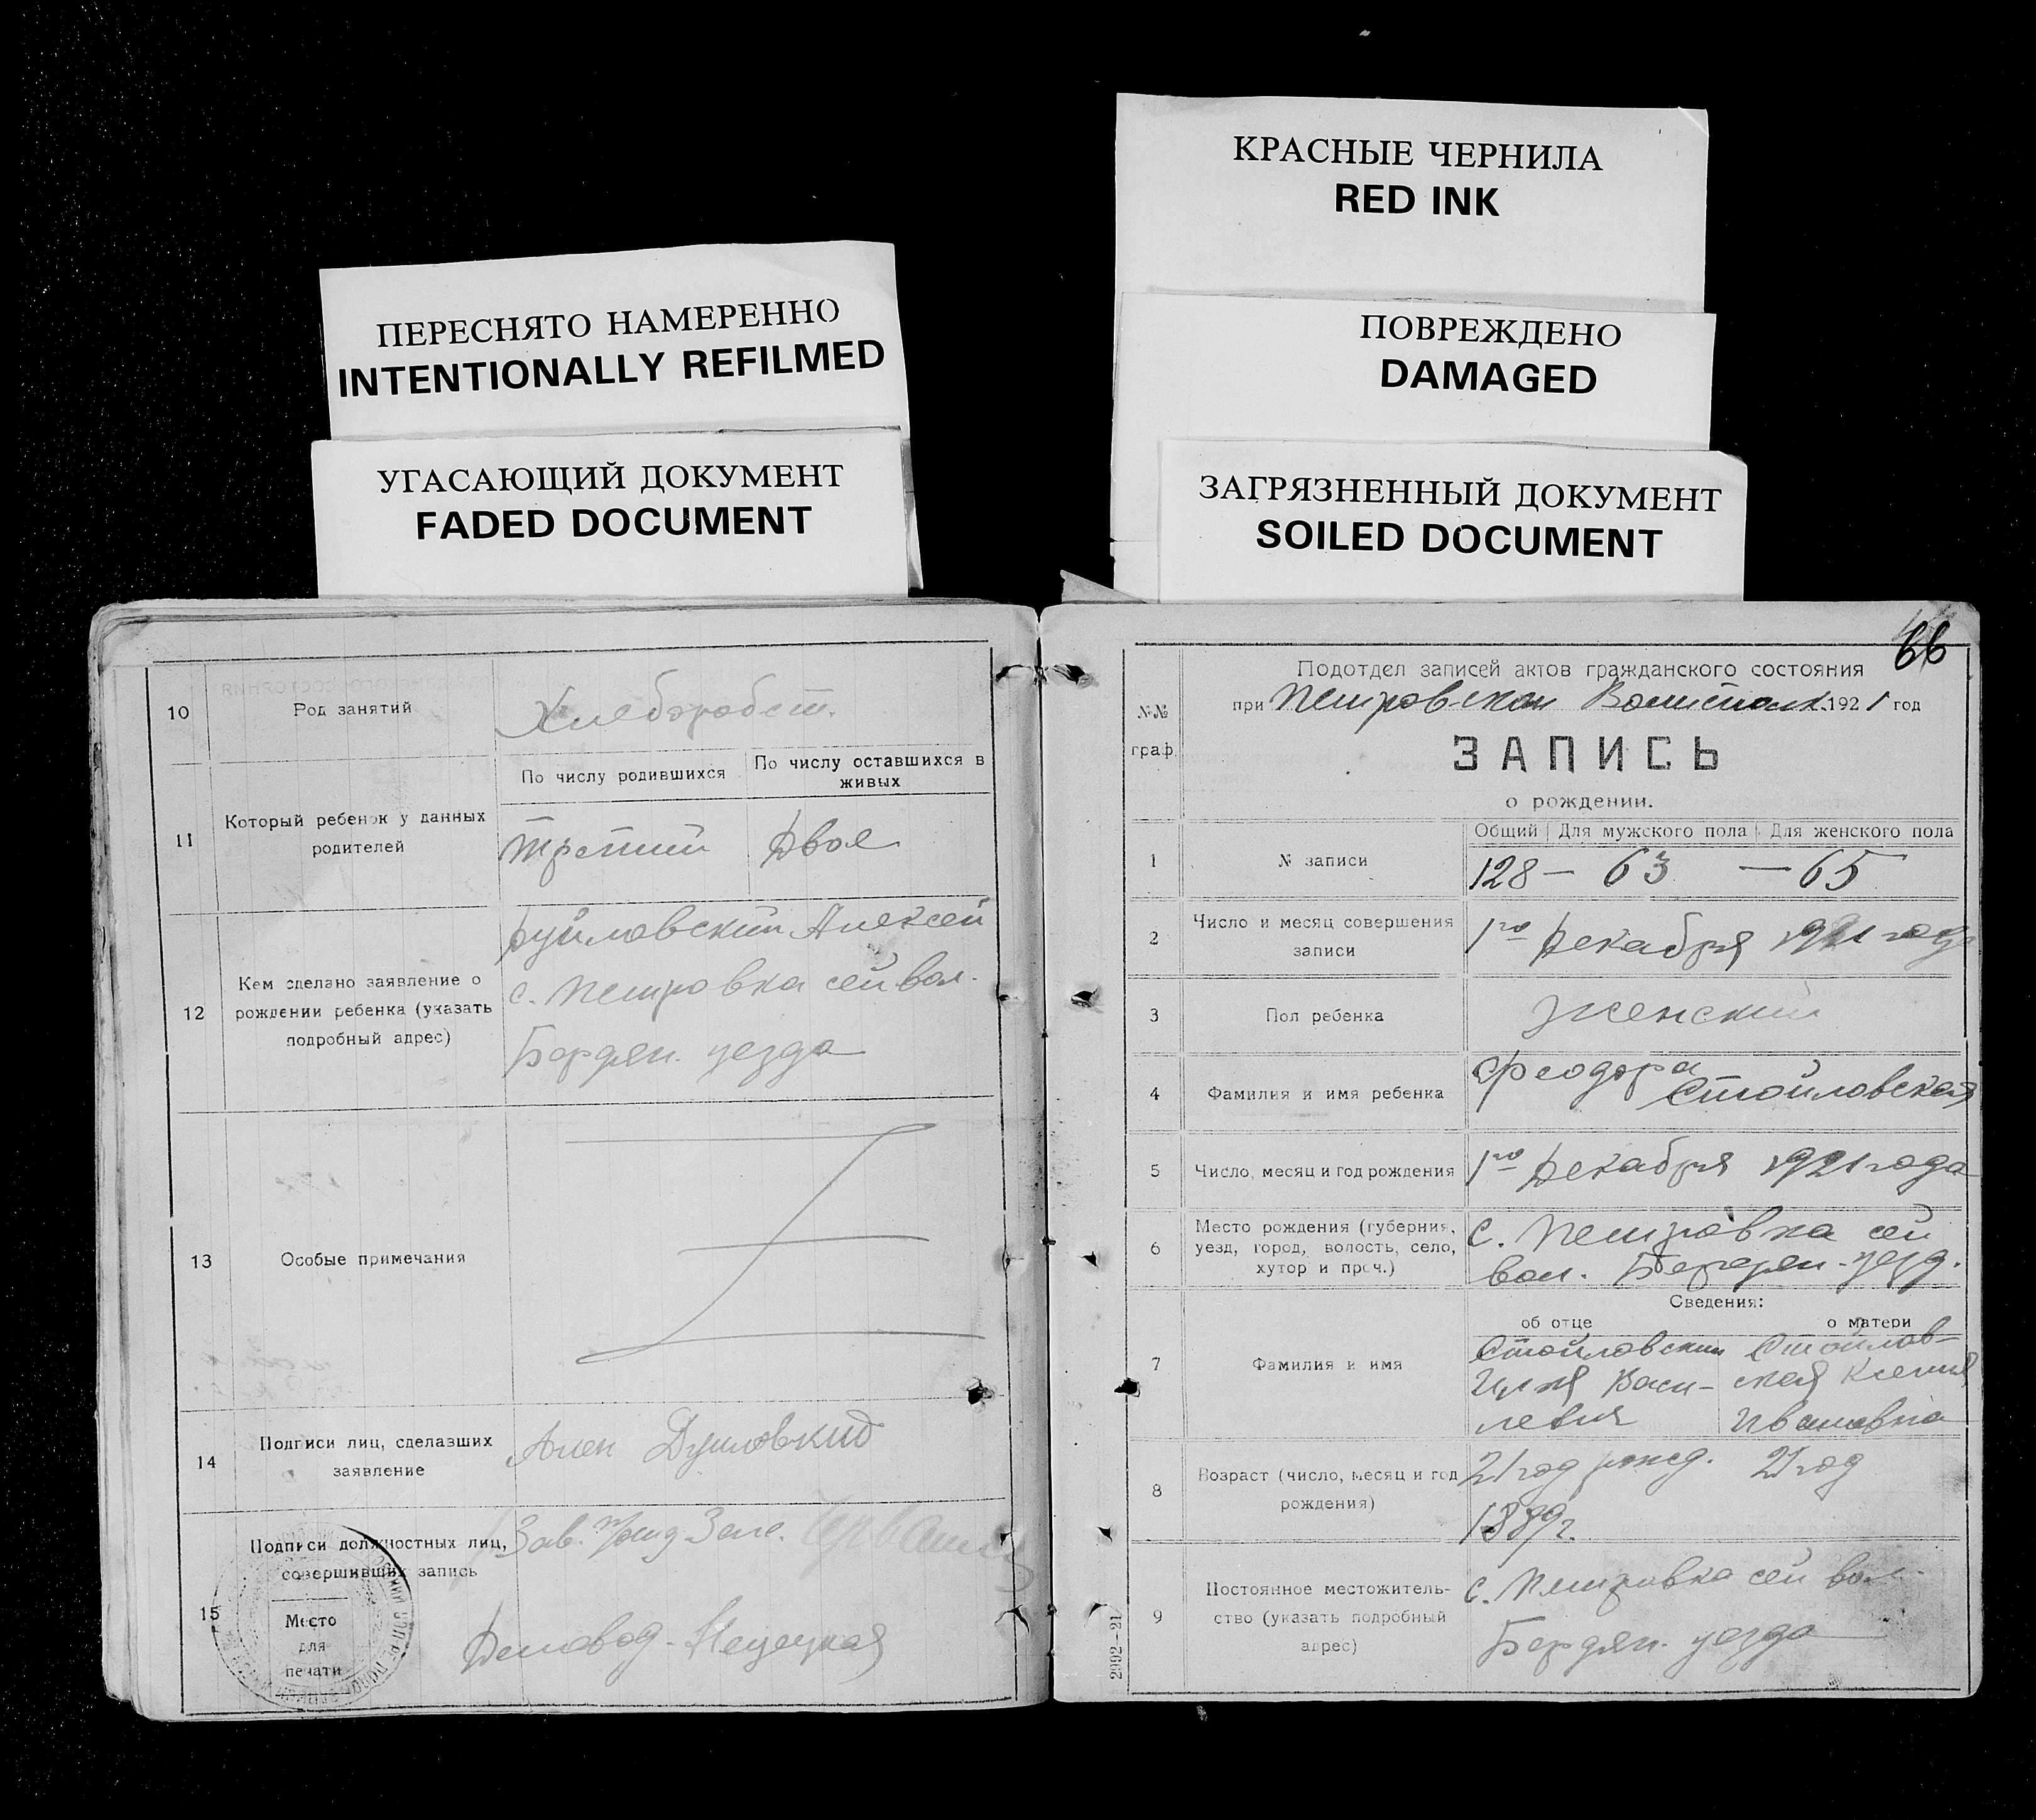 КРАСНЫЕ ЧЕРНИЛА
RED INK
ПЕРЕСНЯТО НАМЕРЕННО
INTENTIONALLY REFILMED
ПОВРЕЖДЕНО
DAMAGED
УГАСАЮЩИЙ ДОКУМЕНТ
FADED DOCUMENT
ЗАГРЯЗНЕННЫЙ ДОКУМЕНТ
SOILED DOCUMENT
10 Род занятий Хлебороб
По числу родившихся По числу оставшихся в живых
11 Который ребенок у данных родителей Третий Двое
12 Кем сделано заявление о рождении ребенка (указать подробный адрес)
Алексей
с. Петровка сей вол.
Бердян. уезда
13 Особые примечания
14 Подписи лиц, сделавших заявление
15 Подписи должностных лиц, совершивших запись
Зав.
Место
для
печати
Деловод -
66
Подотдел записей актов гражданского состояния
№№ граф.
при Петровском 1921 год
ЗАПИСЬ
о рождении.
Общий Для мужского пола Для женского пола
1 № записи 128 — 63 — 65
2 Число и месяц совершения записи 1го Декабря 1921 года
3 Пол ребенка Женский
4 Фамилия и имя ребенка Феодора
Стойловская
5 Число, месяц и год рождения 1го Декабря 1921 года
6 Место рождения (губерния, уезд, город, волость, село, хутор и проч.)
с. Петровка сей
вол. Бердян. уезд.
Сведения:
об отце о матери
7 Фамилия и имя
Стойловский Стойлов-
Илия Васи- ская Ксения
левич Ивановна
8 Возраст (число, месяц и год рождения) 21 год рожд. 21 год
9 Постоянное местожительство (указать подробный адрес)
с. Петровка сей вол.
Бердян. уезда
2992-21